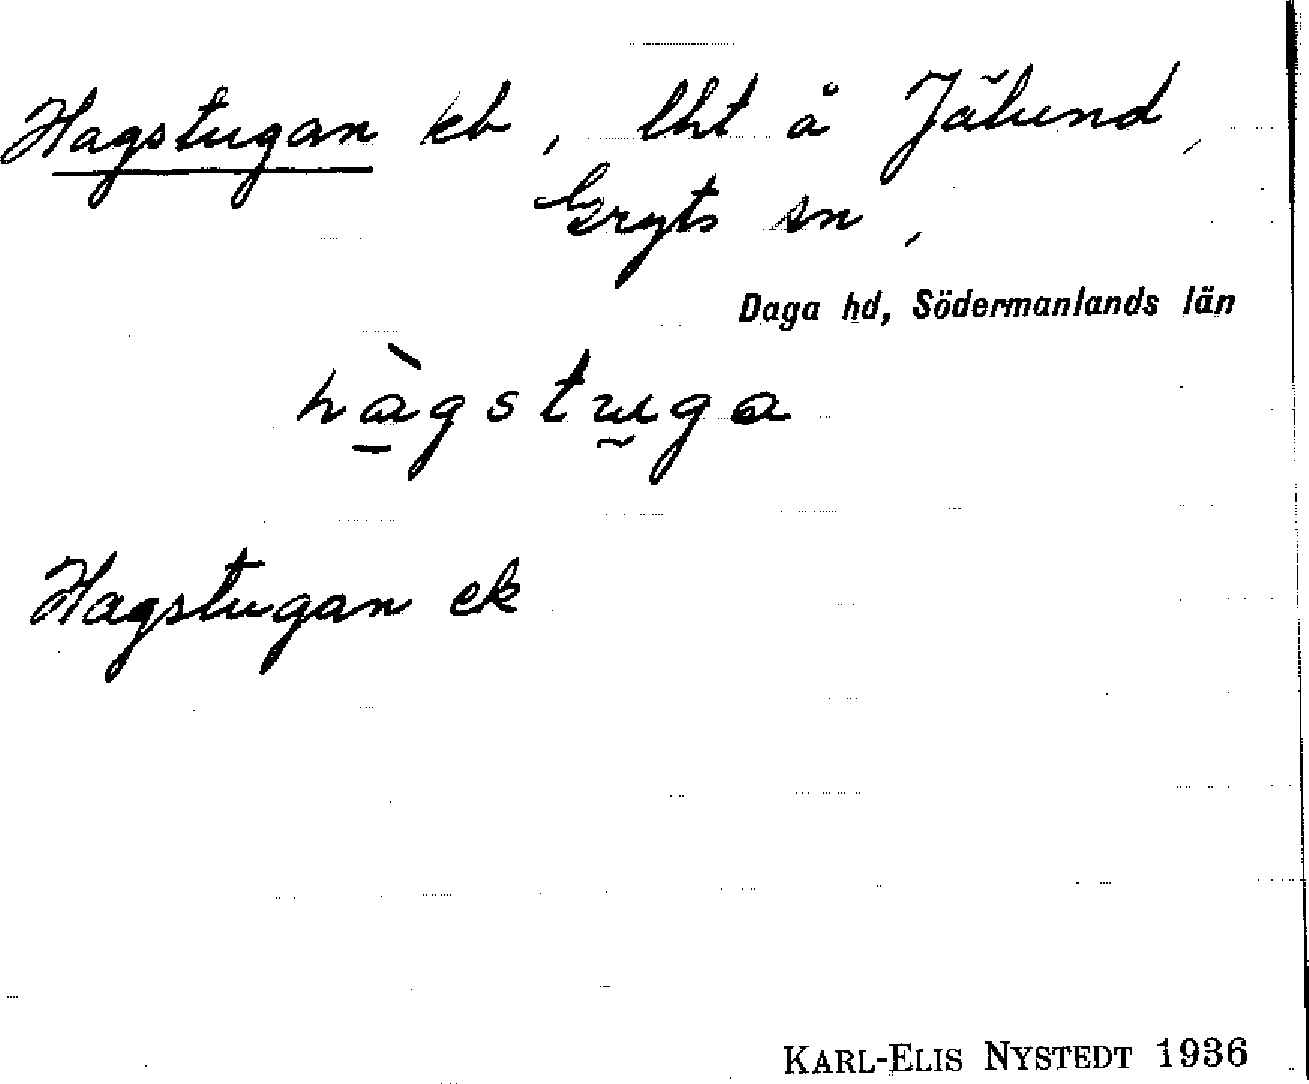 Hagstugan eb, lht å Jälund,
Gryts sn,
Daga hd, Södermanlands län
hàgstuga
Hagstugan ek
KARL-ELIS NYSTEDT 1936